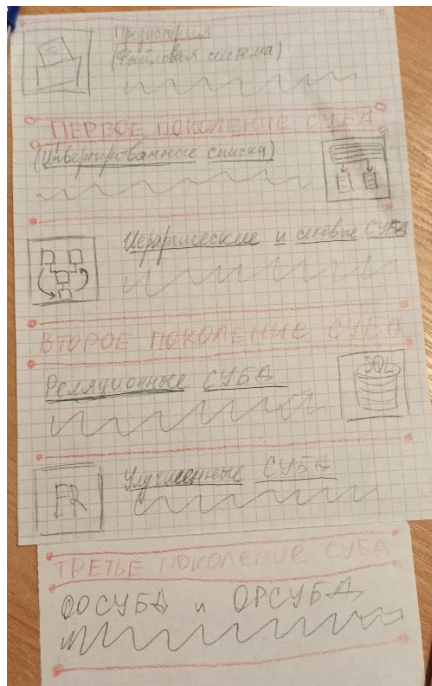 Предыстория
(Файловая система)
ПЕРВОЕ ПОКОЛЕНИЕ СУБД
(Инвертированные списки)
Иерархические и сетевые СУБД
ВТОРОЕ ПОКОЛЕНИЕ СУБД
SQL
Реляционные СУБД
ER
Улучшенные СУБД
ТРЕТЬЕ ПОКОЛЕНИЕ СУБД
ООСУБД и ОРСУБД